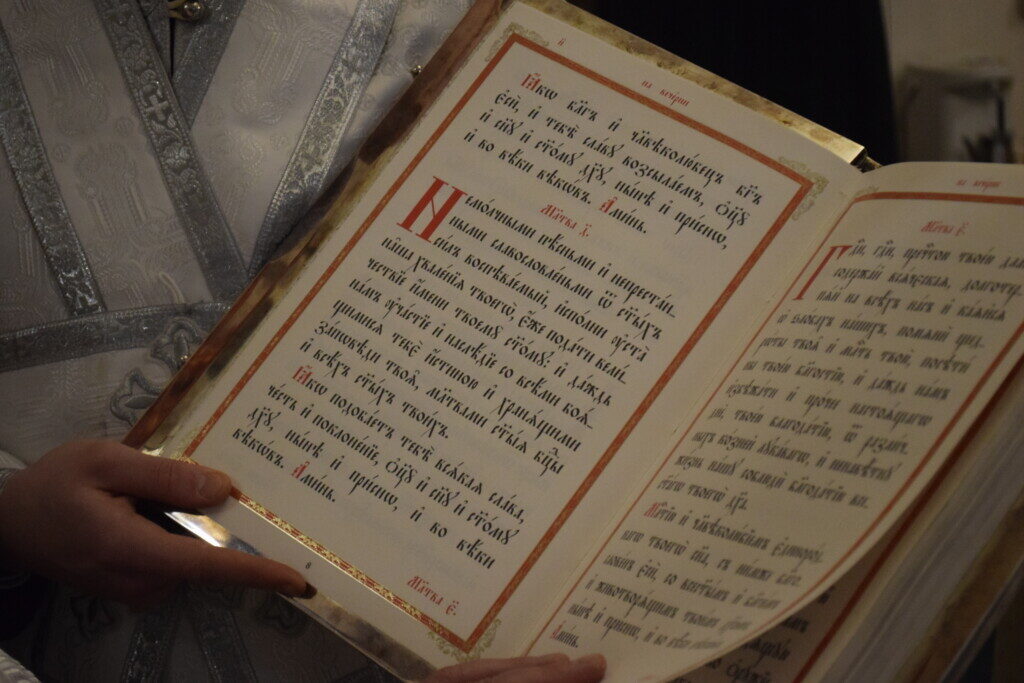 н҃
на вечерни
Ꙗ҆́кѡ бл҃гъ и҆ чл҃вѣколю́бецъ бг҃ъ
є҆сѝ, и҆ тебѣ̀ сла́вꙋ возсыла́емъ, ѻ҆ц҃ꙋ̀
и҆ сн҃ꙋ и҆ ст҃о́мꙋ дх҃ꙋ, ны́нѣ и҆ при́снѡ,
и҆ во вѣ́ки вѣкѡ́въ. А҆ми́нь.
Мл҃тва д҃.
Немо́лчными пѣ́сньми и҆ непреста́н-
ными славословле́ньми ѿ ст҃ы́хъ
си́лъ воспѣва́емый, и҆спо́лни ᲂу҆ста̀
на̑ша хвале́нїѧ твоегѡ̀, є҆́же пода́ти вели́-
чествїе и҆́мени твоемꙋ̀ ст҃о́мꙋ: и҆ да́ждь
на́мъ ᲂу҆ча́стїе и҆ наслѣ́дїе со всѣ́ми боѧ́-
щимисѧ тебє̀ и҆́стиною и҆ хранѧ́щими
за́пѡвѣди твоѧ̑, мл҃твами ст҃ы́ѧ бц҃ы
и҆ всѣ́хъ ст҃ы́хъ твои́хъ.
Ꙗ҆́кѡ подоба́етъ тебѣ̀ всѧ́каѧ сла́ва,
че́сть и҆ поклоне́нїе, ѻ҆ц҃ꙋ̀ и҆ сн҃ꙋ и҆ ст҃о́мꙋ
дх҃ꙋ, ны́нѣ и҆ при́снѡ, и҆ во вѣ́ки
вѣкѡ́въ. А҆ми́нь.
Мл҃тва є҃.
на вечерни
Мл҃тва є҃.
Гд҇и, гд҇и, пречⷭ҇тою твое́ю дла́-
содержа́й всѧ́чєскаѧ, долготер-
на всѣ́хъ на́съ и҆
ѡ҆ ѕло́бахъ на́шихъ, помѧнѝ щед-
ро́ты твоѧ̑ и҆ мл҇ть твою̀, посѣтѝ
ны̀ твое́ю бл҃гостїю, и҆ да́ждь на́мъ
и҆збѣжа́ти и҆ про́чее настоѧ́щагѡ
днѐ, твое́ю благода́тїю, ѿ разли́ч-
ныхъ ко́зней лꙋка́вагѡ, и҆ ненавѣ́тнꙋ
жи́знь на́шꙋ соблюдѝ бл҃года́тїю все-
ст҃а́гѡ твоегѡ̀ дх҃а.
Мл҇тїю и҆ чл҃вѣколю́бїемъ є҆диноро́д-
нагѡ твоегѡ̀ сн҃а, съ ни́мже бл҃го-
слове́нъ є҆сѝ, со всест҃ы́мъ и҆ бл҃ги́мъ
и҆ животворѧ́щимъ твои́мъ
ны́нѣ и҆ при́снѡ, и҆ во вѣ́ки
А҆ми́нь.